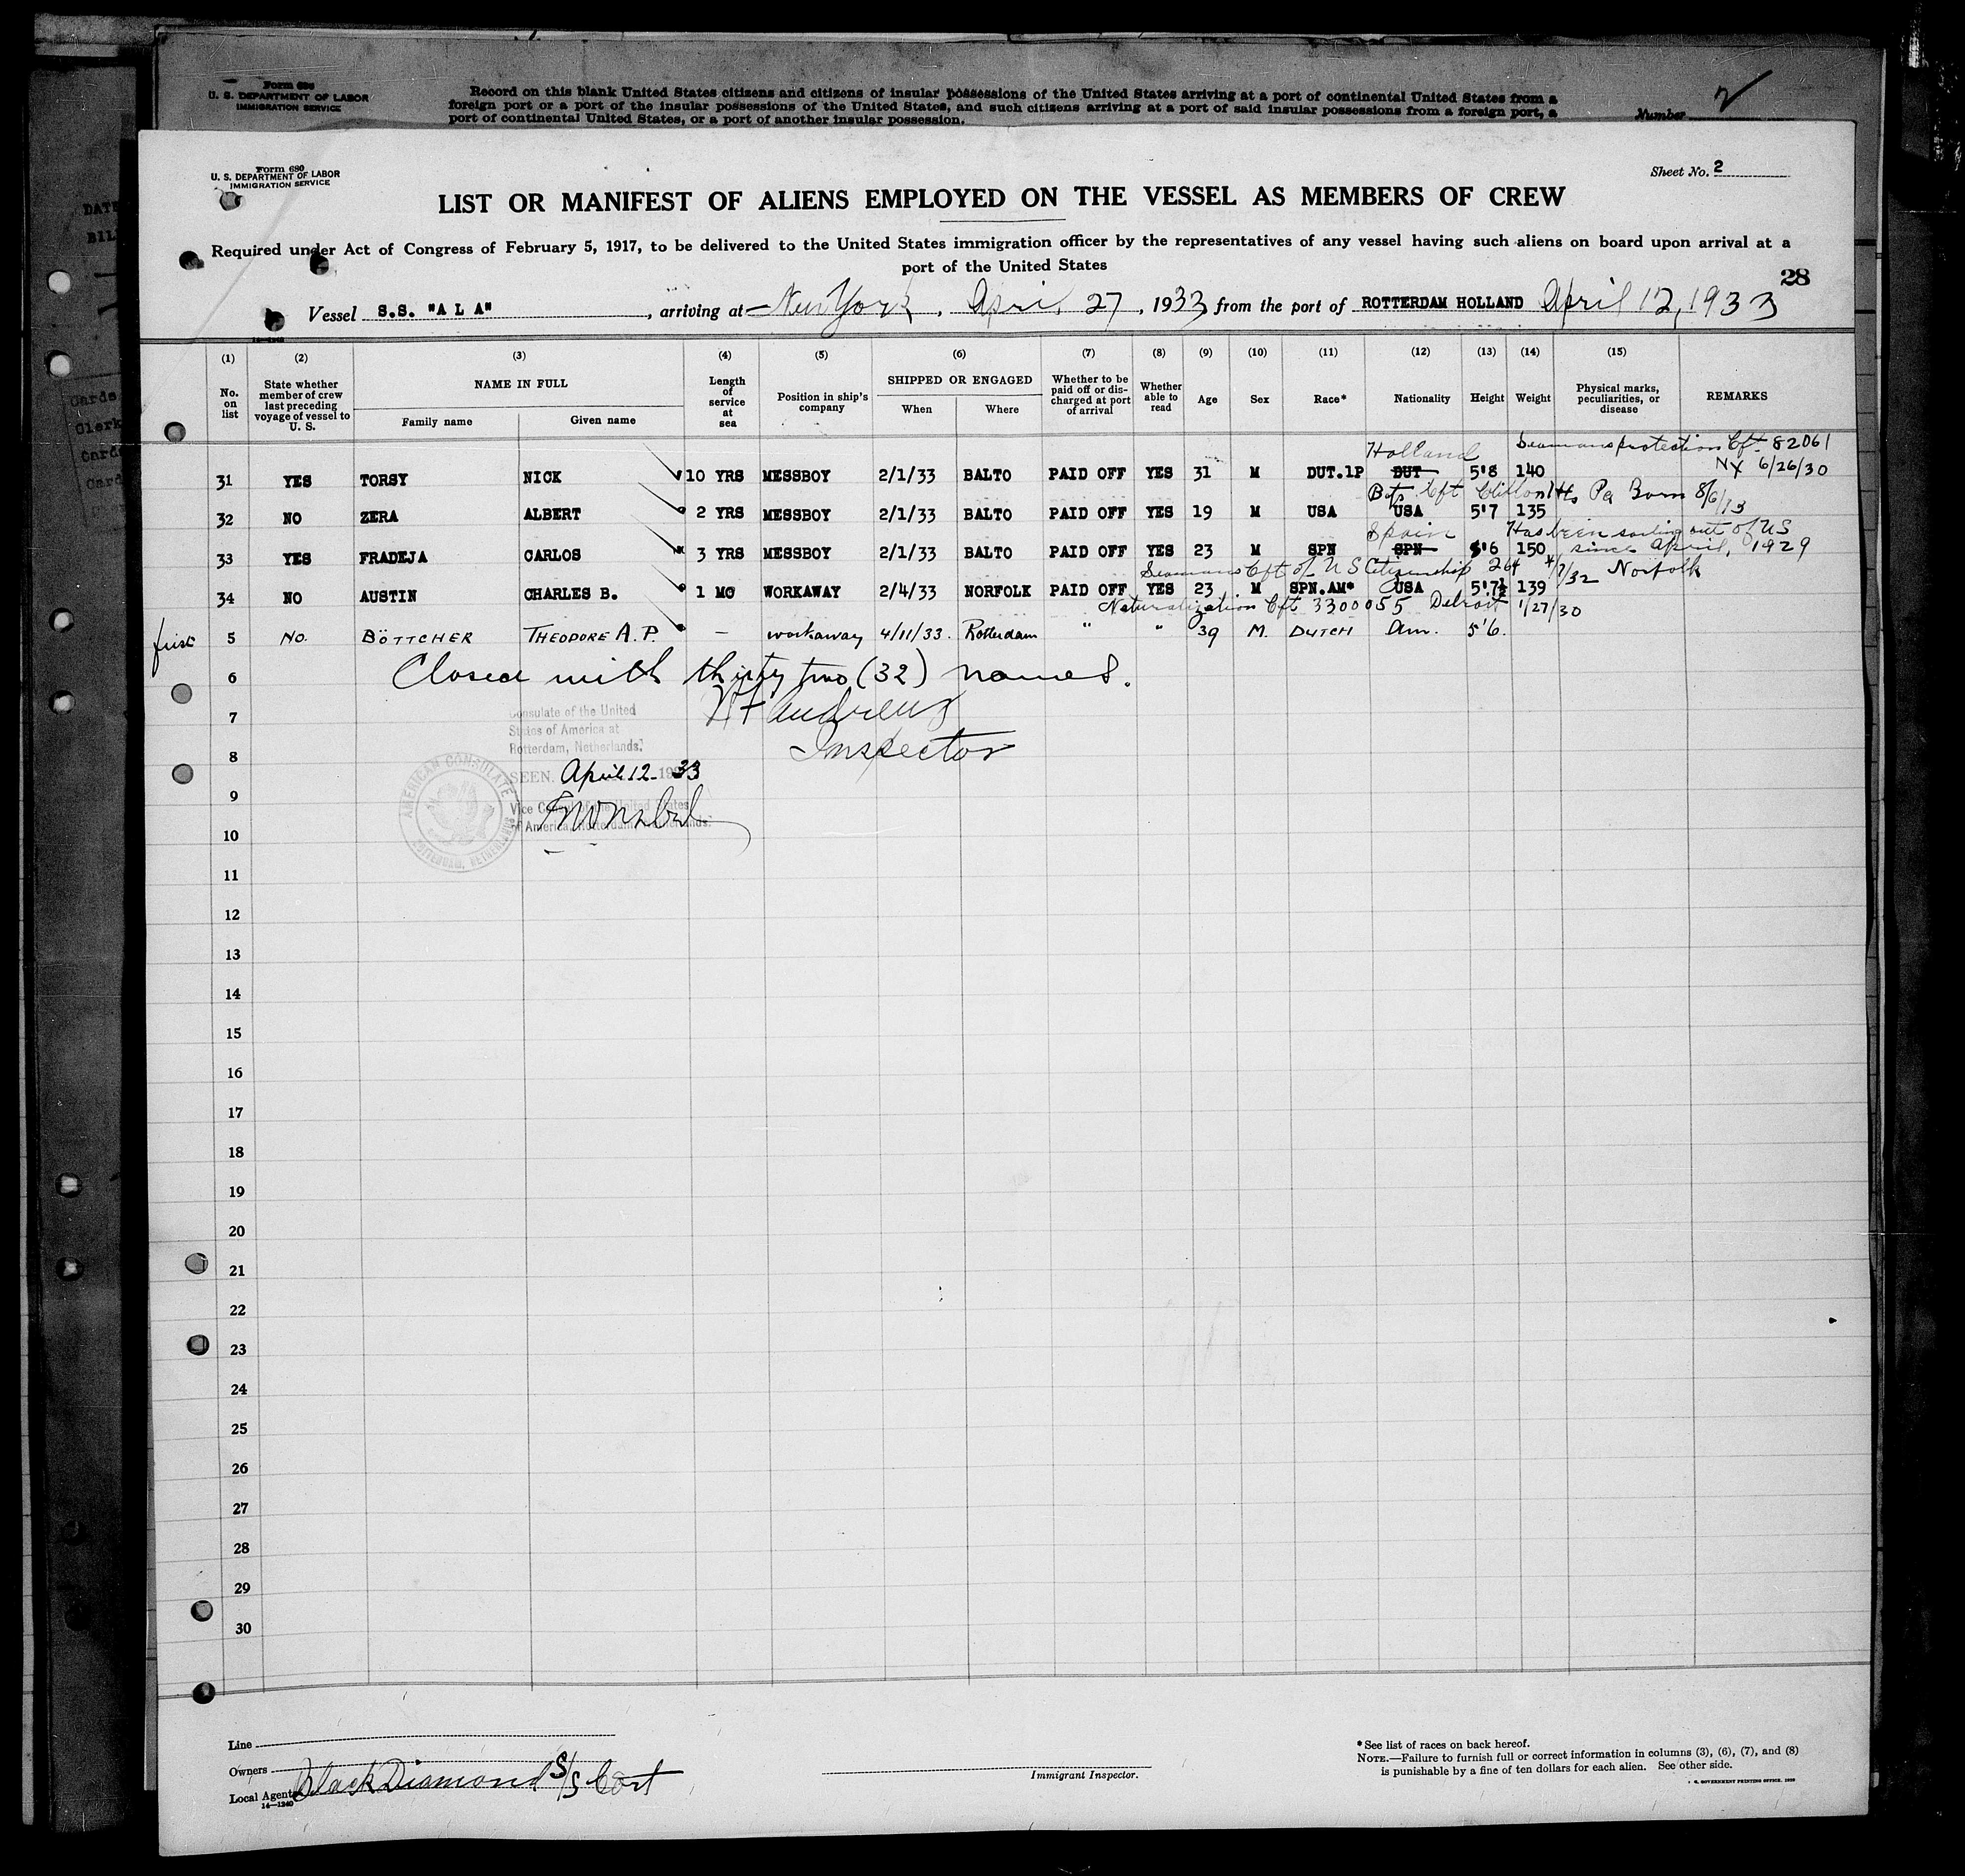 Form 680
U. S. DEPARTMENT OF LABOR
IMMIGRATION SERVICE
Record on this blank United States citizens and citizens of insular possessions of the United States arriving at a port of continental United States from a
foreign port or a port of the insular possessions of the United States, and such citizens arriving at a port of said insular possessions from a foreign port, a
port of continental United States, or a port of another insular possession.
Number 2
Form 680
U. S. DEPARTMENT OF LABOR
IMMIGRATION SERVICE
Sheet No. 2
LIST OR MANIFEST OF ALIENS EMPLOYED ON THE VESSEL AS MEMBERS OF CREW
Required under Act of Congress of February 5, 1917, to be delivered to the United States immigration officer by the representatives of any vessel having such aliens on board upon arrival at a
port of the United States
28
Vessel S.S. "A L A", arriving at New York, April 27, 1933, from the port of ROTTERDAM HOLLAND April 12, 1933
(1) (2) (3) (4) (5) (6) (7) (8) (9) (10) (11) (12) (13) (14) (15)
No. on list
State whether member of crew last preceding voyage of vessel to U. S.
NAME IN FULL
Family name
Given name
Length of service at sea
Position in ship's company
SHIPPED OR ENGAGED
When
Where
Whether to be paid off or discharged at port of arrival
Whether able to read
Age
Sex
Race*
Nationality
Height
Weight
Physical marks, peculiarities, or disease
REMARKS
Holland Seamans protection Cft 82061
NY 6/26/30
31 YES TORSY NICK 10 YRS MESSBOY 2/1/33 BALTO PAID OFF YES 31 M DUT.1P DUT 5'8 140
Cft Clifton Hts Pa Born 8/6/13
32 NO ZERA ALBERT 2 YRS MESSBOY 2/1/33 BALTO PAID OFF YES 19 M USA USA 5'7 135
Spain Has been sailing out of US
since April, 1929
33 YES FRADEJA CARLOS 3 YRS MESSBOY 2/1/33 BALTO PAID OFF YES 23 M SPN SPN 5'6 150
Seamans Cft of US Citizenship 264 4/7/32 Norfolk
34 NO AUSTIN CHARLES B. 1 MO WORKAWAY 2/4/33 NORFOLK PAID OFF YES 23 M SPN.AM* USA 5'7½ 139
Naturalization Cft 3300055 Detroit 1/27/30
first 5 No. BÖTTCHER THEODORE A.P. — workaway 4/11/33. Rotterdam " " 39 M. DUTCH Am. 5'6.
6 Closed with thirty two (32) names.
7 Andrews
8 Inspector
Consulate of the United
States of America at
Rotterdam, Netherlands.
SEEN. April 12 - 1933
Vice Consul of the United States
of America, Rotterdam, Netherlands.
AMERICAN CONSULATE
ROTTERDAM, NETHERLANDS
9
10
11
12
13
14
15
16
17
18
19
20
21
22
23
24
25
26
27
28
29
30
Line
Owners
Local Agents Black Diamond S/S Cort
14—1240
Immigrant Inspector.
* See list of races on back hereof.
NOTE.—Failure to furnish full or correct information in columns (3), (6), (7), and (8)
is punishable by a fine of ten dollars for each alien. See other side.
GOVERNMENT PRINTING OFFICE